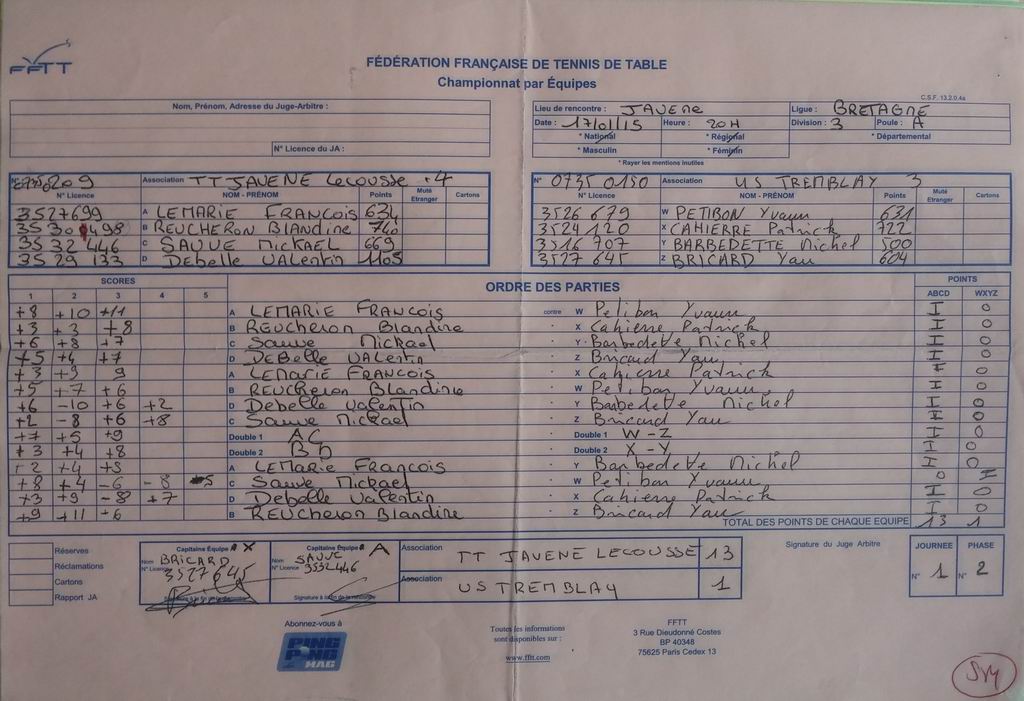 FFTT
FÉDÉRATION FRANÇAISE DE TENNIS DE TABLE
Championnat par Équipes
C.S.F. 13.2.0.4a
Nom, Prénom, Adresse du Juge-Arbitre :
N° Licence du JA :
Lieu de rencontre : JAVENE Ligue : BRETAGNE
Date : 17/01/15 Heure : 20H Division : 3 Poule : A
* National * Régional * Départemental
* Masculin * Féminin
* Rayer les mentions inutiles
N° Association TT JAVENE Lecousse 4
N° Licence NOM - PRÉNOM Points Muté Etranger Cartons
3527699 A LEMARIE FRANCOIS 634
3530498 B REUCHERON Blandine 740
3532446 C SAUVE Mickael 669
3529133 D Debelle VALentin 1105
N° 0735 0150 Association US TREMBLAY 3
N° Licence NOM - PRÉNOM Points Muté Etranger Cartons
3526 679 W PETIBON Yvann 631
3524 120 X CAHIERRE Patrick 722
3516 707 Y BARBEDETTE Michel 500
3527 645 Z BRICARD Yan 604
SCORES ORDRE DES PARTIES POINTS
1 2 3 4 5 ABCD WXYZ
+8 +10 +11 A LEMARIE FRANCOIS contre W Petibon Yvann I 0
+3 +3 +8 B REUCHERON Blandine X Cahierre Patrick I 0
+6 +8 +7 C Sauve Mickael Y Barbedette Michel I 0
+5 +4 +7 D DEBelle VALentin Z Bricard Yan I 0
+3 +9 9 A LEMARIE FRANCOIS X Cahierre Patrick I 0
+5 +7 +6 B REUCHERON Blandine W Petibon Yvann I 0
+6 -10 +6 +2 D Debelle Valentin Y Barbedette Michel I 0
+2 -8 +6 +8 C Sauve Mickael Z Bricard Yan I 0
+7 +5 +9 Double 1 AC Double 1 W - Z I 0
+3 +4 +8 Double 2 BD Double 2 X - Y I 0
+2 +4 +5 A LEMARIE FRANCOIS Y Barbedette Michel I 0
+8 +4 -6 -8 C Sauve Mickael W Petibon Yvann 0 I
+3 +9 -8 +7 D Debelle Valentin X Cahierre Patrick I 0
+9 +11 +6 B REUCHERON Blandine Z Bricard Yan I 0
TOTAL DES POINTS DE CHAQUE EQUIPE 13 1
Réserves
Réclamations
Cartons
Rapport JA
Capitaine Équipe X
Nom BRICARD
N° Licence 3527645
Capitaine Équipe A
Nom SAUVE
N° Licence 3532446
Signature à la fin de la rencontre
Association TT JAVENE LECOUSSE 13
Association US TREMBLAY 1
Signature du Juge Arbitre
JOURNEE PHASE
N° 1 N° 2
Abonnez-vous à
PING PONG MAG
Toutes les informations
sont disponibles sur :
www.fftt.com
FFTT
3 Rue Dieudonné Costes
BP 40348
75625 Paris Cedex 13